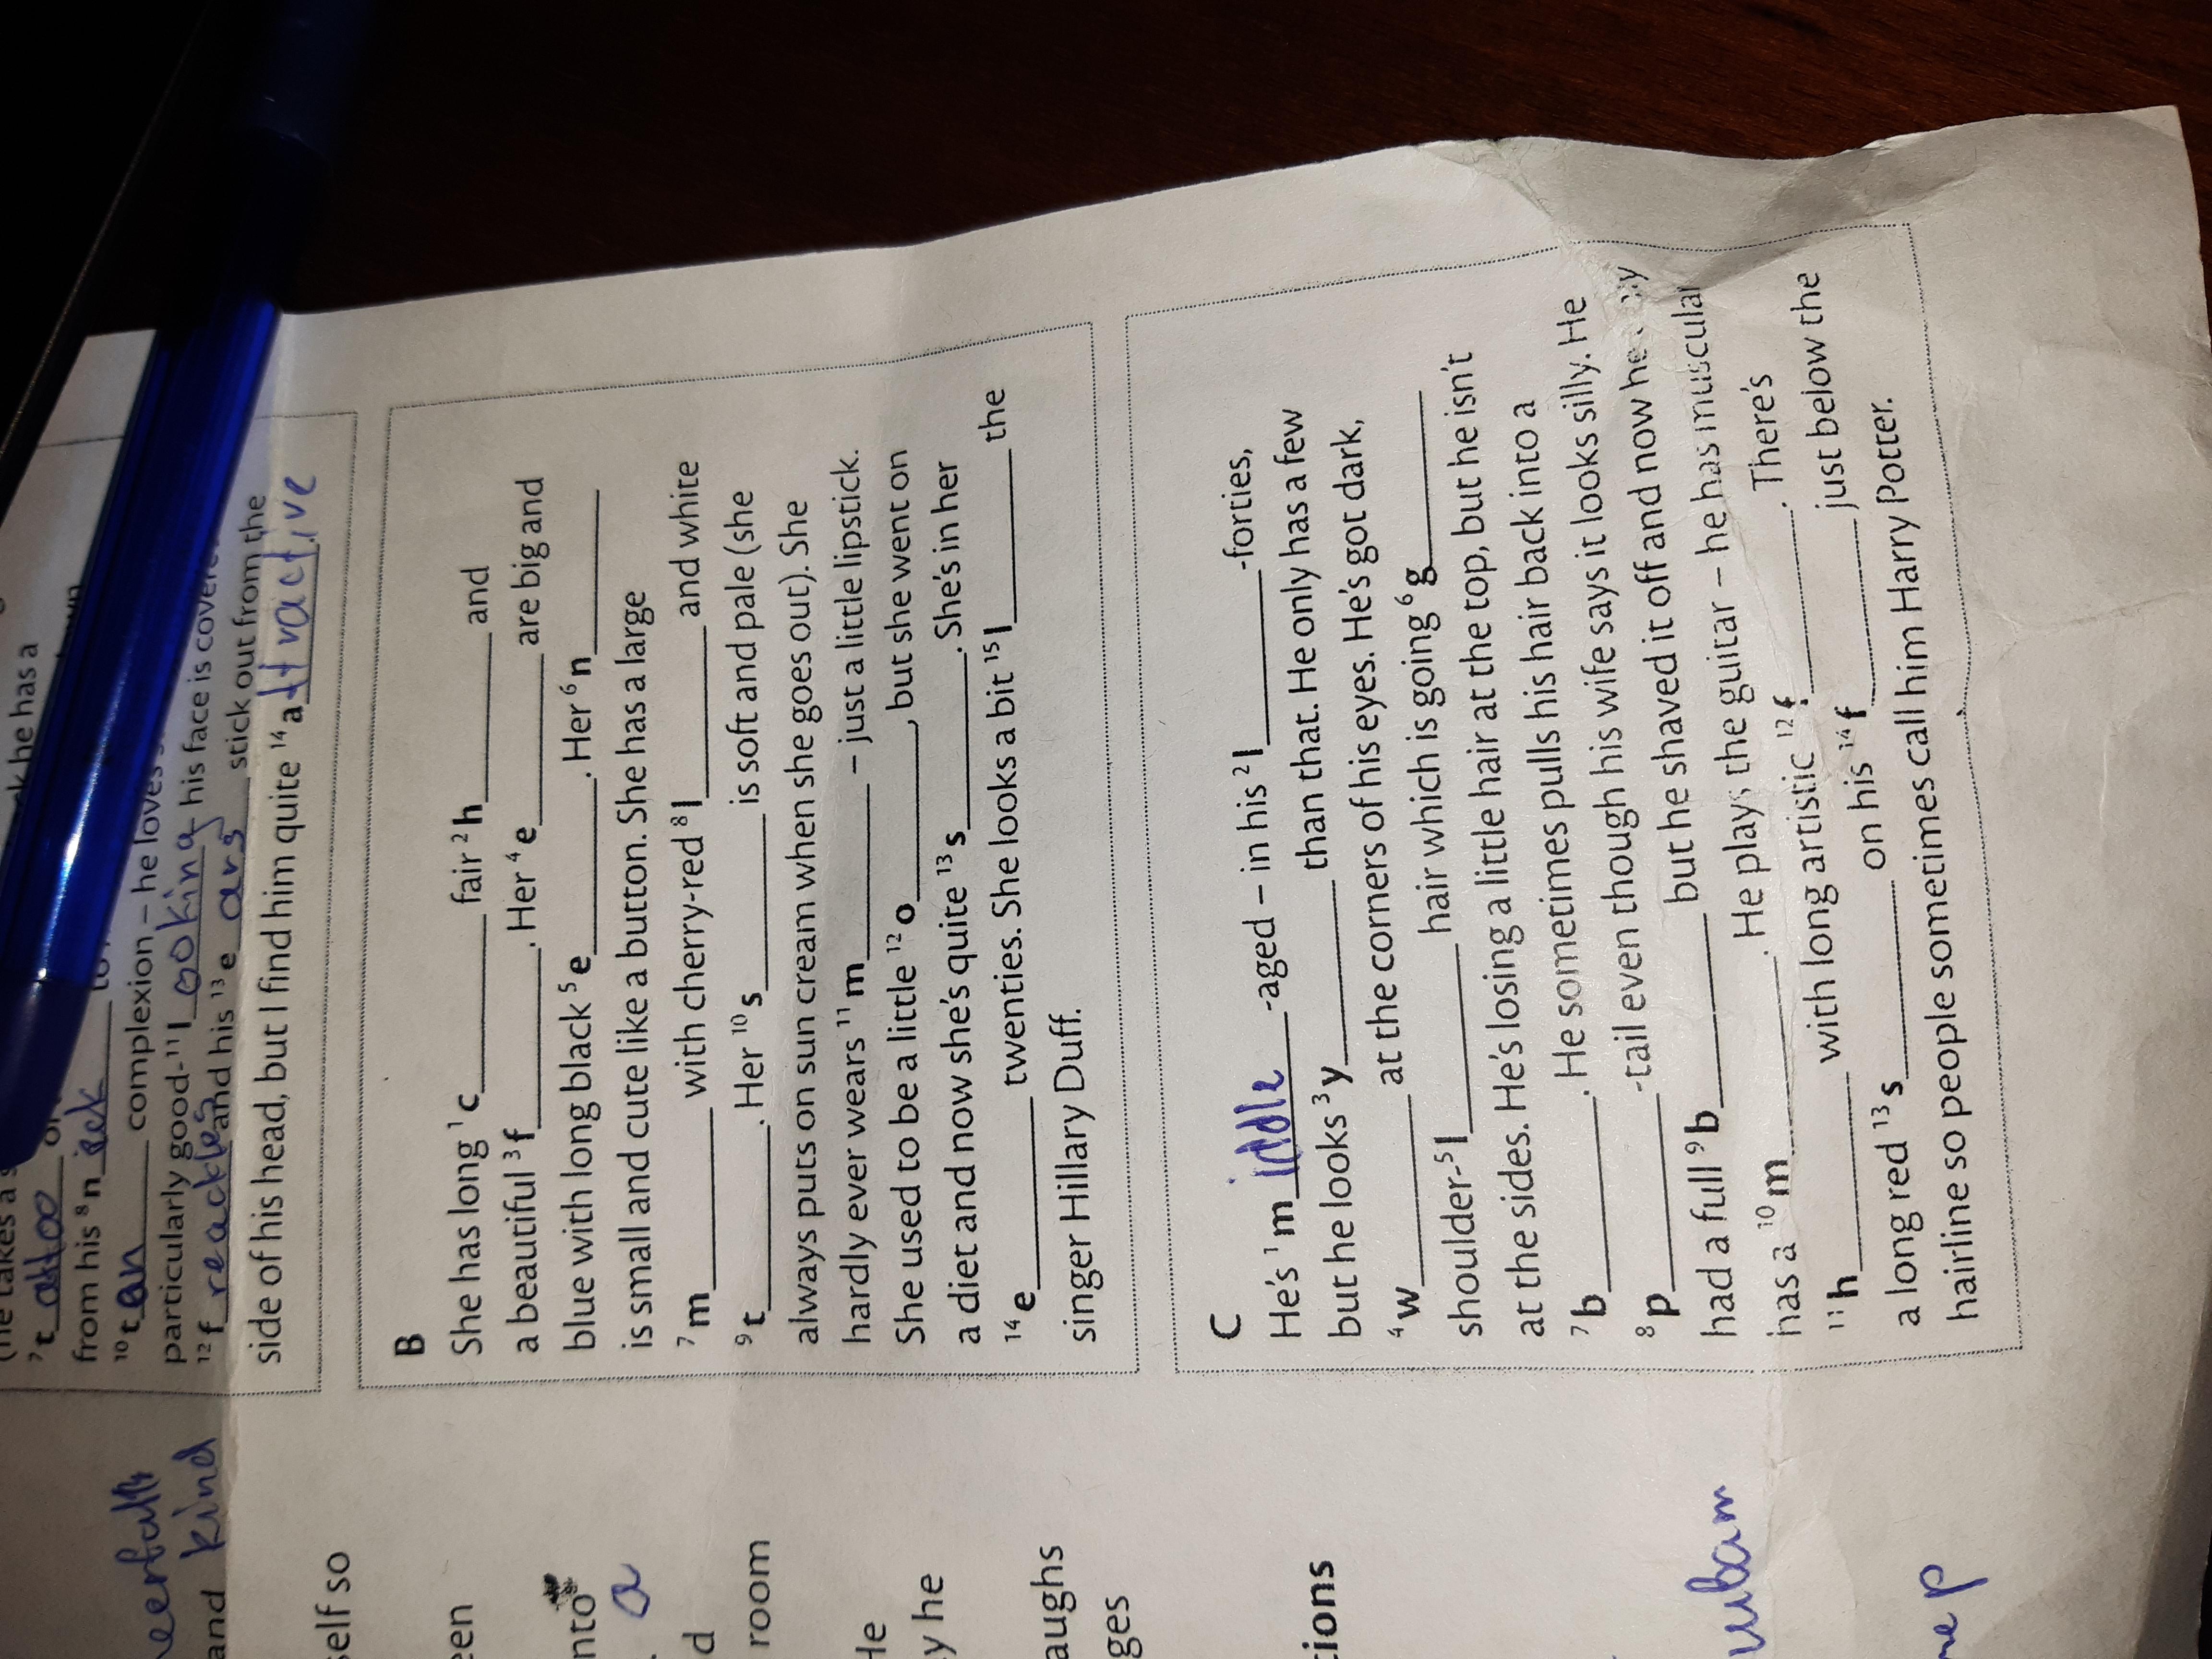 k he has a
(he takes a s
7 t attoo o
from his 8 n eck
10 t an complexion – he loves
particularly good- 11 l ooking his face is cover
12 f reackles and his 13 e ars stick out from the
side of his head, but I find him quite 14 attractive
B
She has long 1 c________ fair 2 h________ and
a beautiful 3 f________. Her 4 e________ are big and
blue with long black 5 e________. Her 6 n________
is small and cute like a button. She has a large
7 m________ with cherry-red 8 l________ and white
9 t________. Her 10 s________ is soft and pale (she
always puts on sun cream when she goes out). She
hardly ever wears 11 m________ – just a little lipstick.
She used to be a little 12 o________, but she went on
a diet and now she's quite 13 s________. She's in her
14 e________ twenties. She looks a bit 15 l________ the
singer Hillary Duff.
C
He's 1 m iddle -aged – in his 2 l________ -forties,
but he looks 3 y________ than that. He only has a few
4 w________ at the corners of his eyes. He's got dark,
shoulder- 5 l________ hair which is going 6 g________
at the sides. He's losing a little hair at the top, but he isn't
7 b________. He sometimes pulls his hair back into a
8 p________ -tail even though his wife says it looks silly. He
had a full 9 b________ but he shaved it off and now he
has a 10 m________. He plays the guitar – he has muscular
11 h________ with long artistic 12 f________. There's
a long red 13 s________ on his 14 f________ just below the
hairline so people sometimes call him Harry Potter.
and kind
self so
een
nto
a
d
room
He
y he
aughs
ges
tions